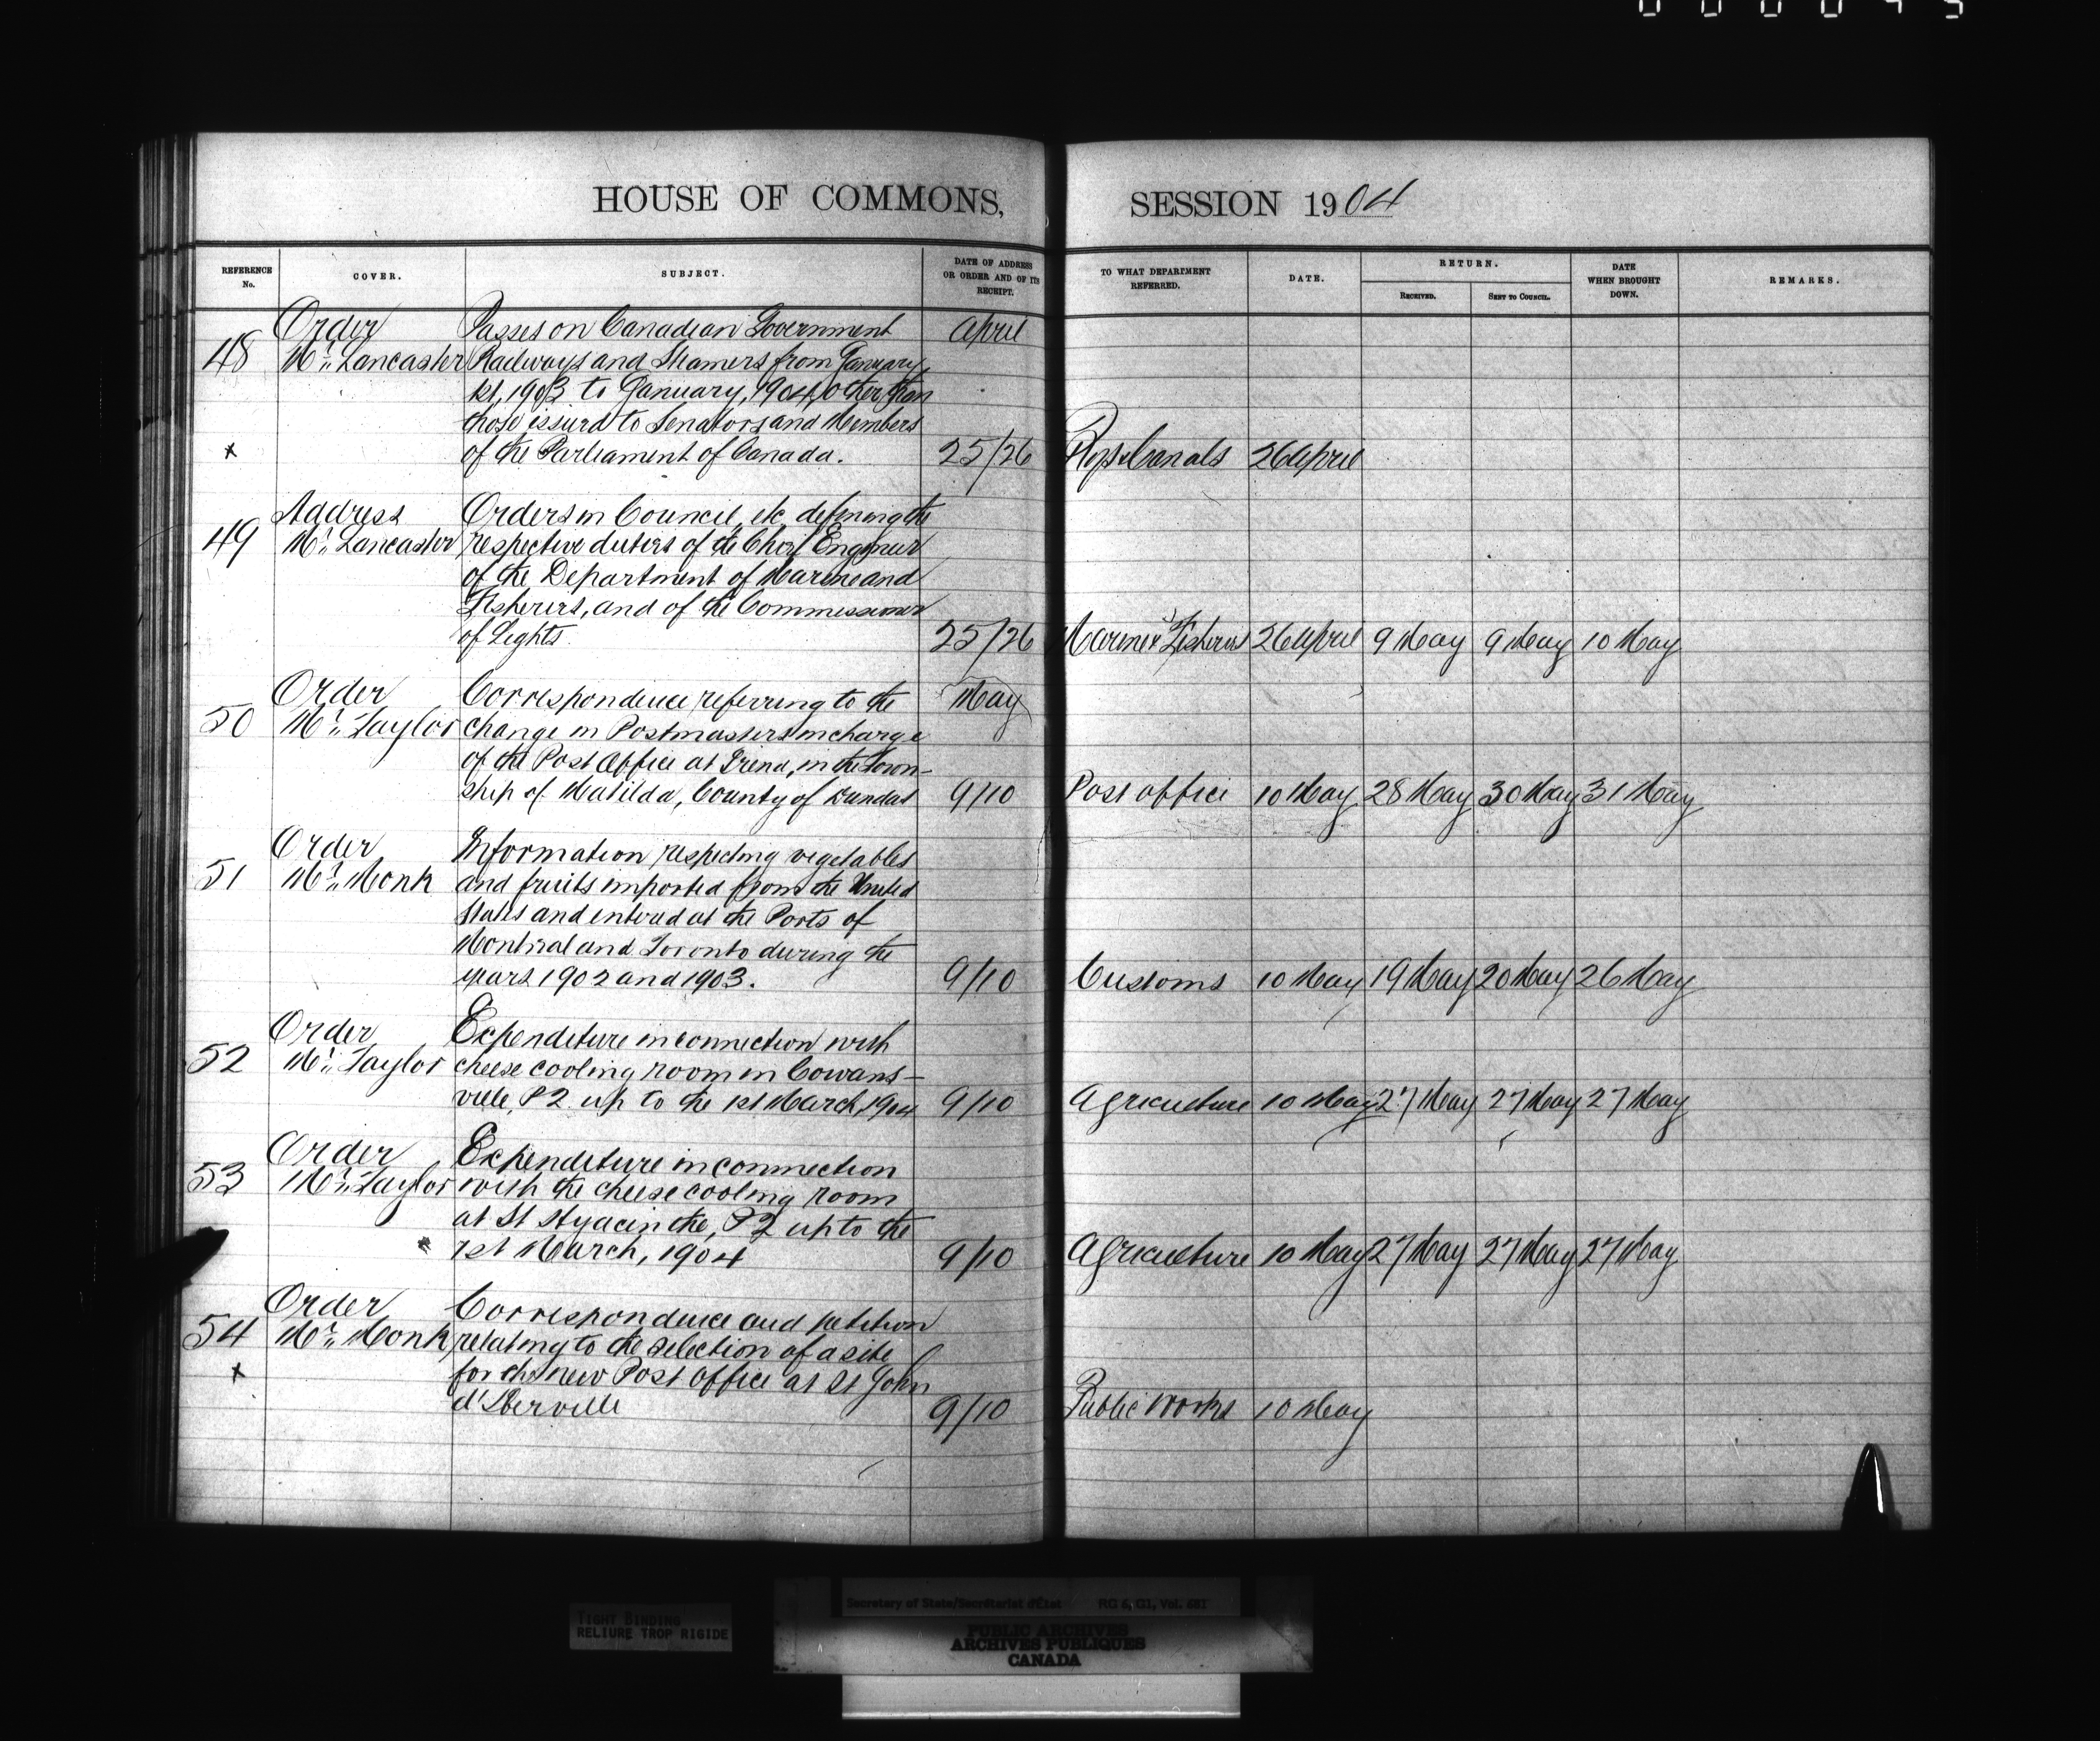 HOUSE OF COMMONS,
SESSION 1904
REFERENCE No.
COVER.
SUBJECT.
DATE OF ADDRESS OR ORDER AND OF ITS RECEIPT.
TO WHAT DEPARTMENT REFERRED.
DATE.
RETURN.
RECEIVED.
SENT TO COUNCIL.
DATE WHEN BROUGHT DOWN.
REMARKS.
Order
Passes on Canadian Government
April
48
Mr. Lancaster
Railways and Steamers from January
1st, 1903 to January, 1904, other than
those issued to Senators and Members
x
of the Parliament of Canada.
25/26
Rys & Canals
26 April
Address
Orders in Council, etc, defining the
49
Mr. Lancaster
respective duties of the Chief Engineer
of the Department of Marine and
Fisheries, and of the Commissioner
of Lights.
25/26
Marine & Fisheries
26 April
9 May
9 May
10 May
Order
Correspondence referring to the
May
50
Mr. Taylor
change in Postmasters in charge
of the Post Office at Irena, in the Town-
ship of Matilda, County of Dundas
9/10
Post office
10 May
28 May
30 May
31 May
Order
Information respecting vegetables
51
Mr. Monk
and fruits imported from the United
States and entered at the Ports of
Montreal and Toronto during the
years 1902 and 1903.
9/10
Customs
10 May
19 May
20 May
26 May
Order
Expenditure in connection with
52
Mr. Taylor
cheese cooling room in Cowans-
ville, P2 up to the 1st March, 1904
9/10
Agriculture
10 May
27 May
27 May
27 May
Order
Expenditure in connection
53
Mr. Taylor
with the cheese cooling room
at St Hyacinthe, P2 up to the
1st March, 1904
9/10
Agriculture
10 May
27 May
27 May
27 May
Order
Correspondence and petition
54
Mr. Monk
relating to the selection of a site
x
for the new Post Office at St John
d'Iberville
9/10
Public Works
10 May
TIGHT BINDING
RELIURE TROP RIGIDE
Secretary of State/Secrétariat d'État RG 6, G1, Vol. 681
PUBLIC ARCHIVES
ARCHIVES PUBLIQUES
CANADA